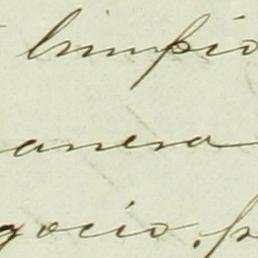 limpio
anera
gocio. p